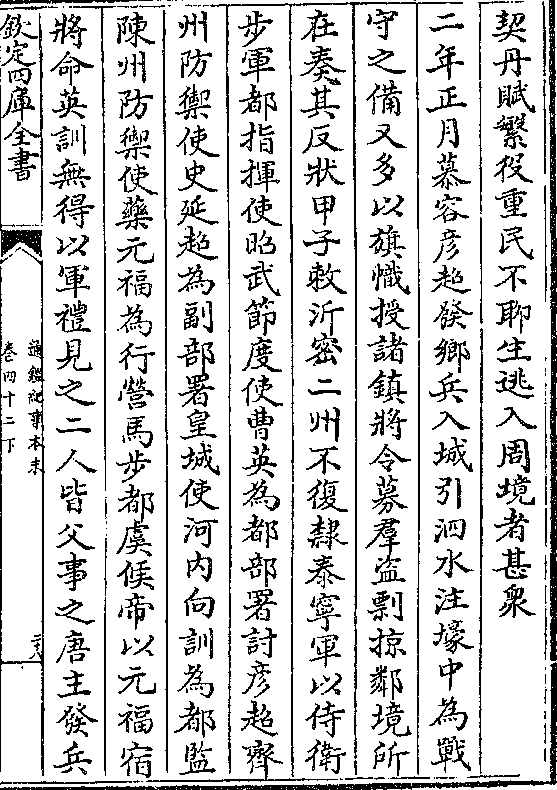 契丹賦繁役重民不聊生逃入周境者甚衆
二年正月慕容彦超發鄉兵入城引泗水注壕中為戰
守之備又多以旗幟授諸鎮將令募羣盗剽掠鄰境所
在奏其反狀甲子敕沂密二州不復隷泰寧軍以侍衛
步軍都指揮使昭武節度使曹英為都部署討彦超齊
州防禦使史延超為副部署皇城使河内向訓為都監
陳州防禦使藥元福為行營馬步都虞候帝以元福宿
將命英訓無得以軍禮見之二人皆父事之唐主發兵
欽定四庫全書
通鑑紀事本末
卷四十二下